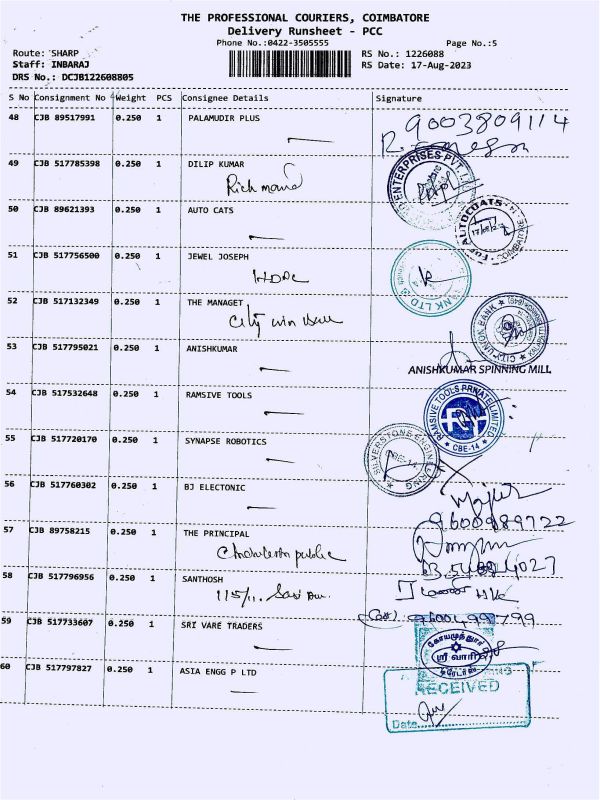 THE PROFESSIONAL COURIERS, COIMBATORE
Delivery Runsheet - PCC
Phone No.:0422-3505555 Page No.:5
Route: SHARP RS No.: 1226088
Staff: INBARAJ RS Date: 17-Aug-2023
DRS No.: DCJB122608805
S No Consignment No Weight PCS Consignee Details Signature
48 CJB 89517991 0.250 1 PALAMUDIR PLUS
9003809114
49 CJB 517785398 0.250 1 DILIP KUMAR
Richmond
ENTERPRISES PVT. LTD
50 CJB 89621393 0.250 1 AUTO CATS
For AUTOCOATS
COIMBATORE
51 CJB 517756500 0.250 1 JEWEL JOSEPH
HDFC
BANK LTD
52 CJB 517132349 0.250 1 THE MANAGET
City
CITY UNION BANK
53 CJB 517795021 0.250 1 ANISHKUMAR
ANISHKUMAR SPINNING MILL
54 CJB 517532648 0.250 1 RAMSIVE TOOLS
RAMSIVE TOOLS PRIVATE LIMITED
CBE-14
55 CJB 517720170 0.250 1 SYNAPSE ROBOTICS
SILVERSTONE ENGINEERING
56 CJB 517760302 0.250 1 BJ ELECTONIC
9600989722
57 CJB 89758215 0.250 1 THE PRINCIPAL
public
58 CJB 517796956 0.250 1 SANTHOSH
115/11.
59 CJB 517733607 0.250 1 SRI VARE TRADERS
கோயமுத்தூர்
ஸ்ரீ வாரி
டிரேடர்ஸ்
60 CJB 517797827 0.250 1 ASIA ENGG P LTD
RECEIVED
Date